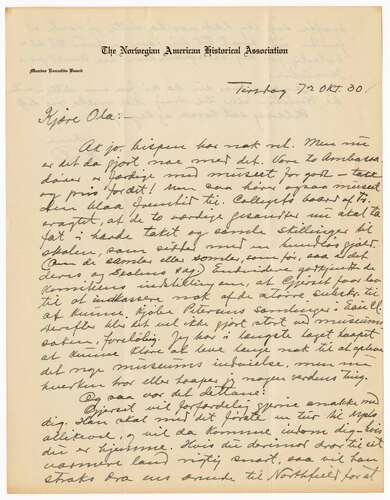 The Norwegian American Historical Association
Member Executive Board
Tirsdag 7 Okt. 30
Kjære Ola:-
Ak jo, bispen har nok ret. Men nu
er det da gjort noe med det. Vore to Ambassa
dører er færdige med museet for godt - takk
og pris for dit! Men saa hører ogsaa museet
den blaa fremtid til. College's board of Tr.
, at de to værdige skal ta
fat i harde taket og samle stillinger til
skolen, som sidder med en gjæld.
(Om de samler eller somler, som før, saa er det
deres og skolens sag.) Endvidere godkjendte de
Komiteens indstilling om, at Gjerset faar lov
til at indkassere nok af de større subskr. til
at kunne kjøbe Petersens samlinger.
derefter blir det vel ikke gjort stort ved museums
saken, foreløbig. Jeg har i længste laget haapet
at kunne klare at leve længe nok til at opleve
det nye museums indvielse, men nu
hverken tror eller haaper jeg nogen verdens ting.
Og saa var det dettane:
Gjerset vil forfærdelig gjerne snakke med
dig. Han skal med det første en tur til Mpls
allikevel, og vil da komme indom dig - hvis
du er hjemme. Hvis du derimot drar til et
varmere land rigtig snart, saa vil han
straks dra ens ærende til Northfield for at